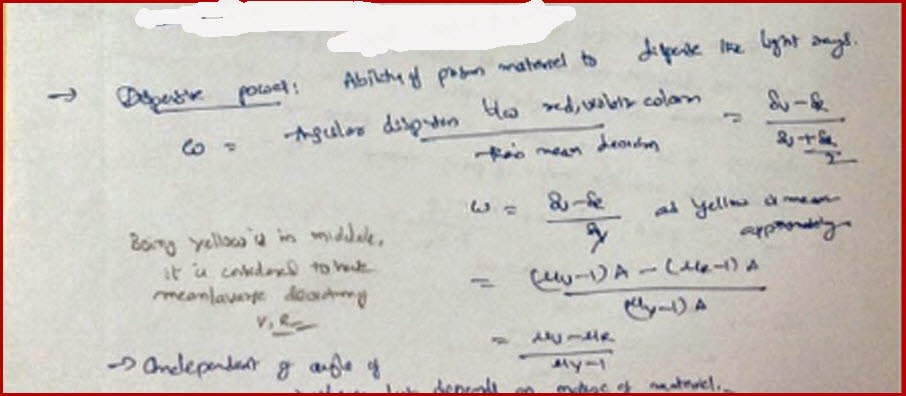 → Dispersive power: Ability of prism material to disperse the light rays.
ω = Angular dispersion b/w red, violet colors / their mean deviation = δv - δR / (δv + δR / 2)
ω = δv - δR / δy as yellow is mean approximately
Being yellow is in middle,
it is considered to have
mean/average deviation of
V, R
= (μv-1)A - (μR-1)A / (μy-1)A
= μv - μR / μy-1
→ Independent of angle of
but depends on nature of material.